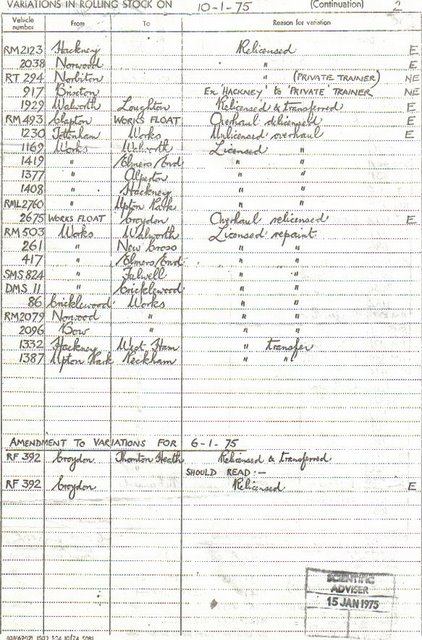 VARIATIONS IN ROLLING STOCK ON 10-1-75 (Continuation) 2
Vehicle number From To Reason for variation
RM2123 Hackney Relicensed E
2038 Norwood " E
RT 294 Norbiton " (PRIVATE TRAINER) NE
917 Brixton Ex HACKNEY' to 'PRIVATE' TRAINER NE
1929 Walworth Loughton Relicensed & transferred E
RM493 Clapton WORKS FLOAT Overhaul delicensed E
1230 Tottenham Works Unlicensed overhaul E
1169 Works Walworth Licensed "
1419 " Elmers End " "
1377 " Alperton " "
1408 " Hackney " "
RML2760 " Upton Park " "
2675 WORKS FLOAT Croydon Overhaul relicensed E
RM503 Works Walworth Licensed repaint
261 " New Cross " "
417 " Elmers End " "
SMS 824 " Fulwell " "
DMS 11 " Cricklewood " "
86 Cricklewood Works " "
RM2079 Norwood " " "
2096 Bow " " "
1332 Hackney West Ham " transfer
1387 Upton Park Peckham " "
AMENDMENT TO VARIATIONS FOR 6-1-75
RF 392 Croydon Thornton Heath Relicensed & transferred
SHOULD READ:-
RF 392 Croydon Relicensed E
SCIENTIFIC
ADVISER
15 JAN 1975